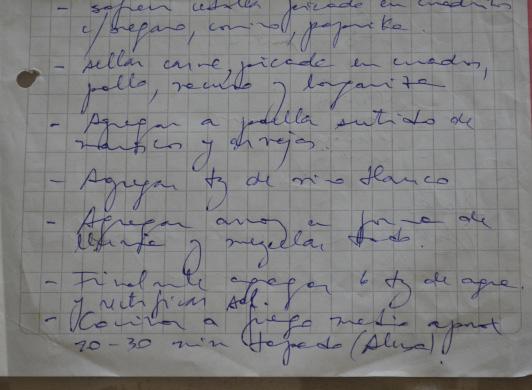 - sofreir cebolla picada en cuadritos
c/oregano, comino, paprika.
- sellar carne, picada en cuadros,
pollo, vacuno y longaniza
- Agregar a paella surtido de
mariscos y arvejas.
- Agregar tz de vino blanco
- Agregar arroz en forma de
lluvia y mezclar todo.
- Finalmente agregar 6 tz de agua.
y rectificar sal.
- Cocinar a fuego medio aprox
20-30 min tapado (Alusa)